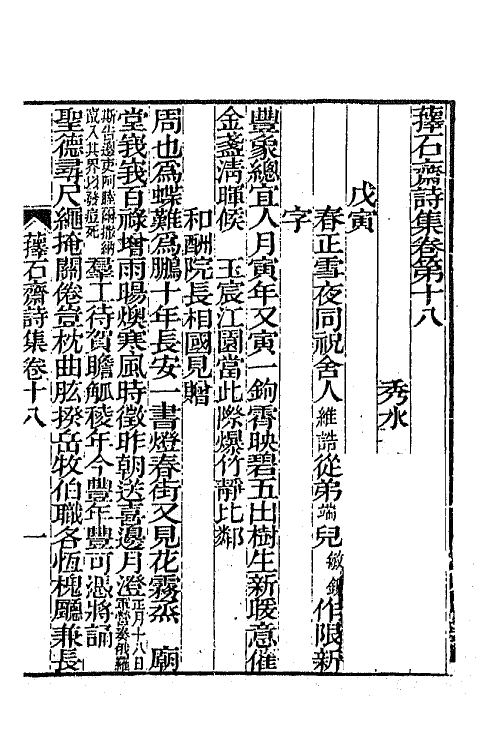 蘀石齋詩集卷第十八
秀水
戊寅
春正雪夜同祝舍人維誥從弟端兒敏錞作限新
字
豐象總宜人月寅年又寅一鉤霄映碧五出樹生新暖意催
金盞清暉候玉宸江園當此際爆竹靜比鄰
和酬院長相國見贈
周也爲蝶難爲鵬十年長安一書燈春街又見花霧烝 廟
堂峩峩百祿增雨暘燠寒風時徵昨朝送喜邊月澄正月十八日軍營奏俄羅
斯告邊吏阿睦爾撒納竄入其界內發痘死羣工待賀瞻觚稜年今豐年豐可慿將誦
聖德尋尺繩掩關倦豈枕曲肱揆岳牧伯職各恆槐廳兼長
蘀石齋詩集卷十八
一